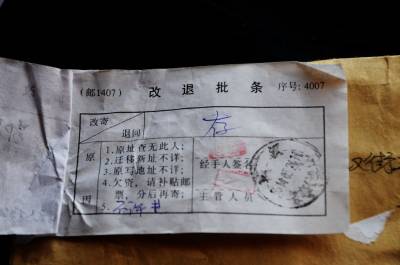 (邮1407) 改退批条 序号:4007
改寄
退回
存
原因
1.原址查无此人;
2.迁移新址不详;
3.原写地址不详;
4.欠资,请补贴邮票,分后再寄;
5.
经手人签名
主管人员